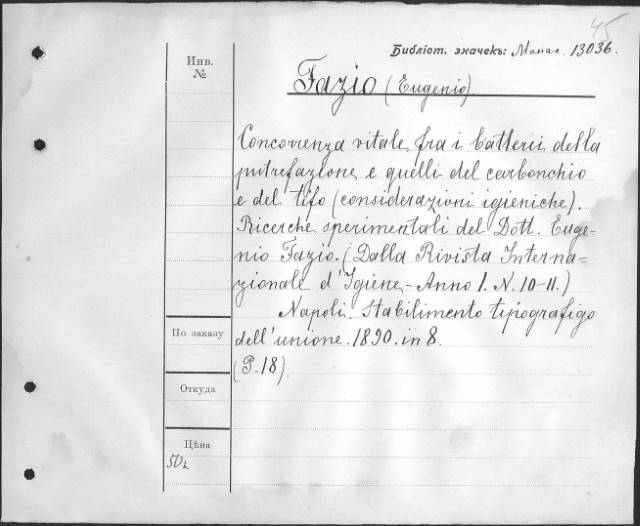 45
Библіот. значекъ: Манас. 13036.
Инв.
№
Fazio (Eugenio)
Concorrenza vitale fra i batterii della
putrefazione e quelli del carbonchio
e del tifo (considerazioni igieniche).
Ricerche sperimentali del Dott. Euge-
nio Fazio. (Dalla Rivista Interna-
zionale d'Igiene-Anno 1. N. 10-11.)
Napoli. Stabilimento tipografigo
dell'unione. 1890. in 8.
(P. 18).
По заказу
Откуда
Цѣна
50